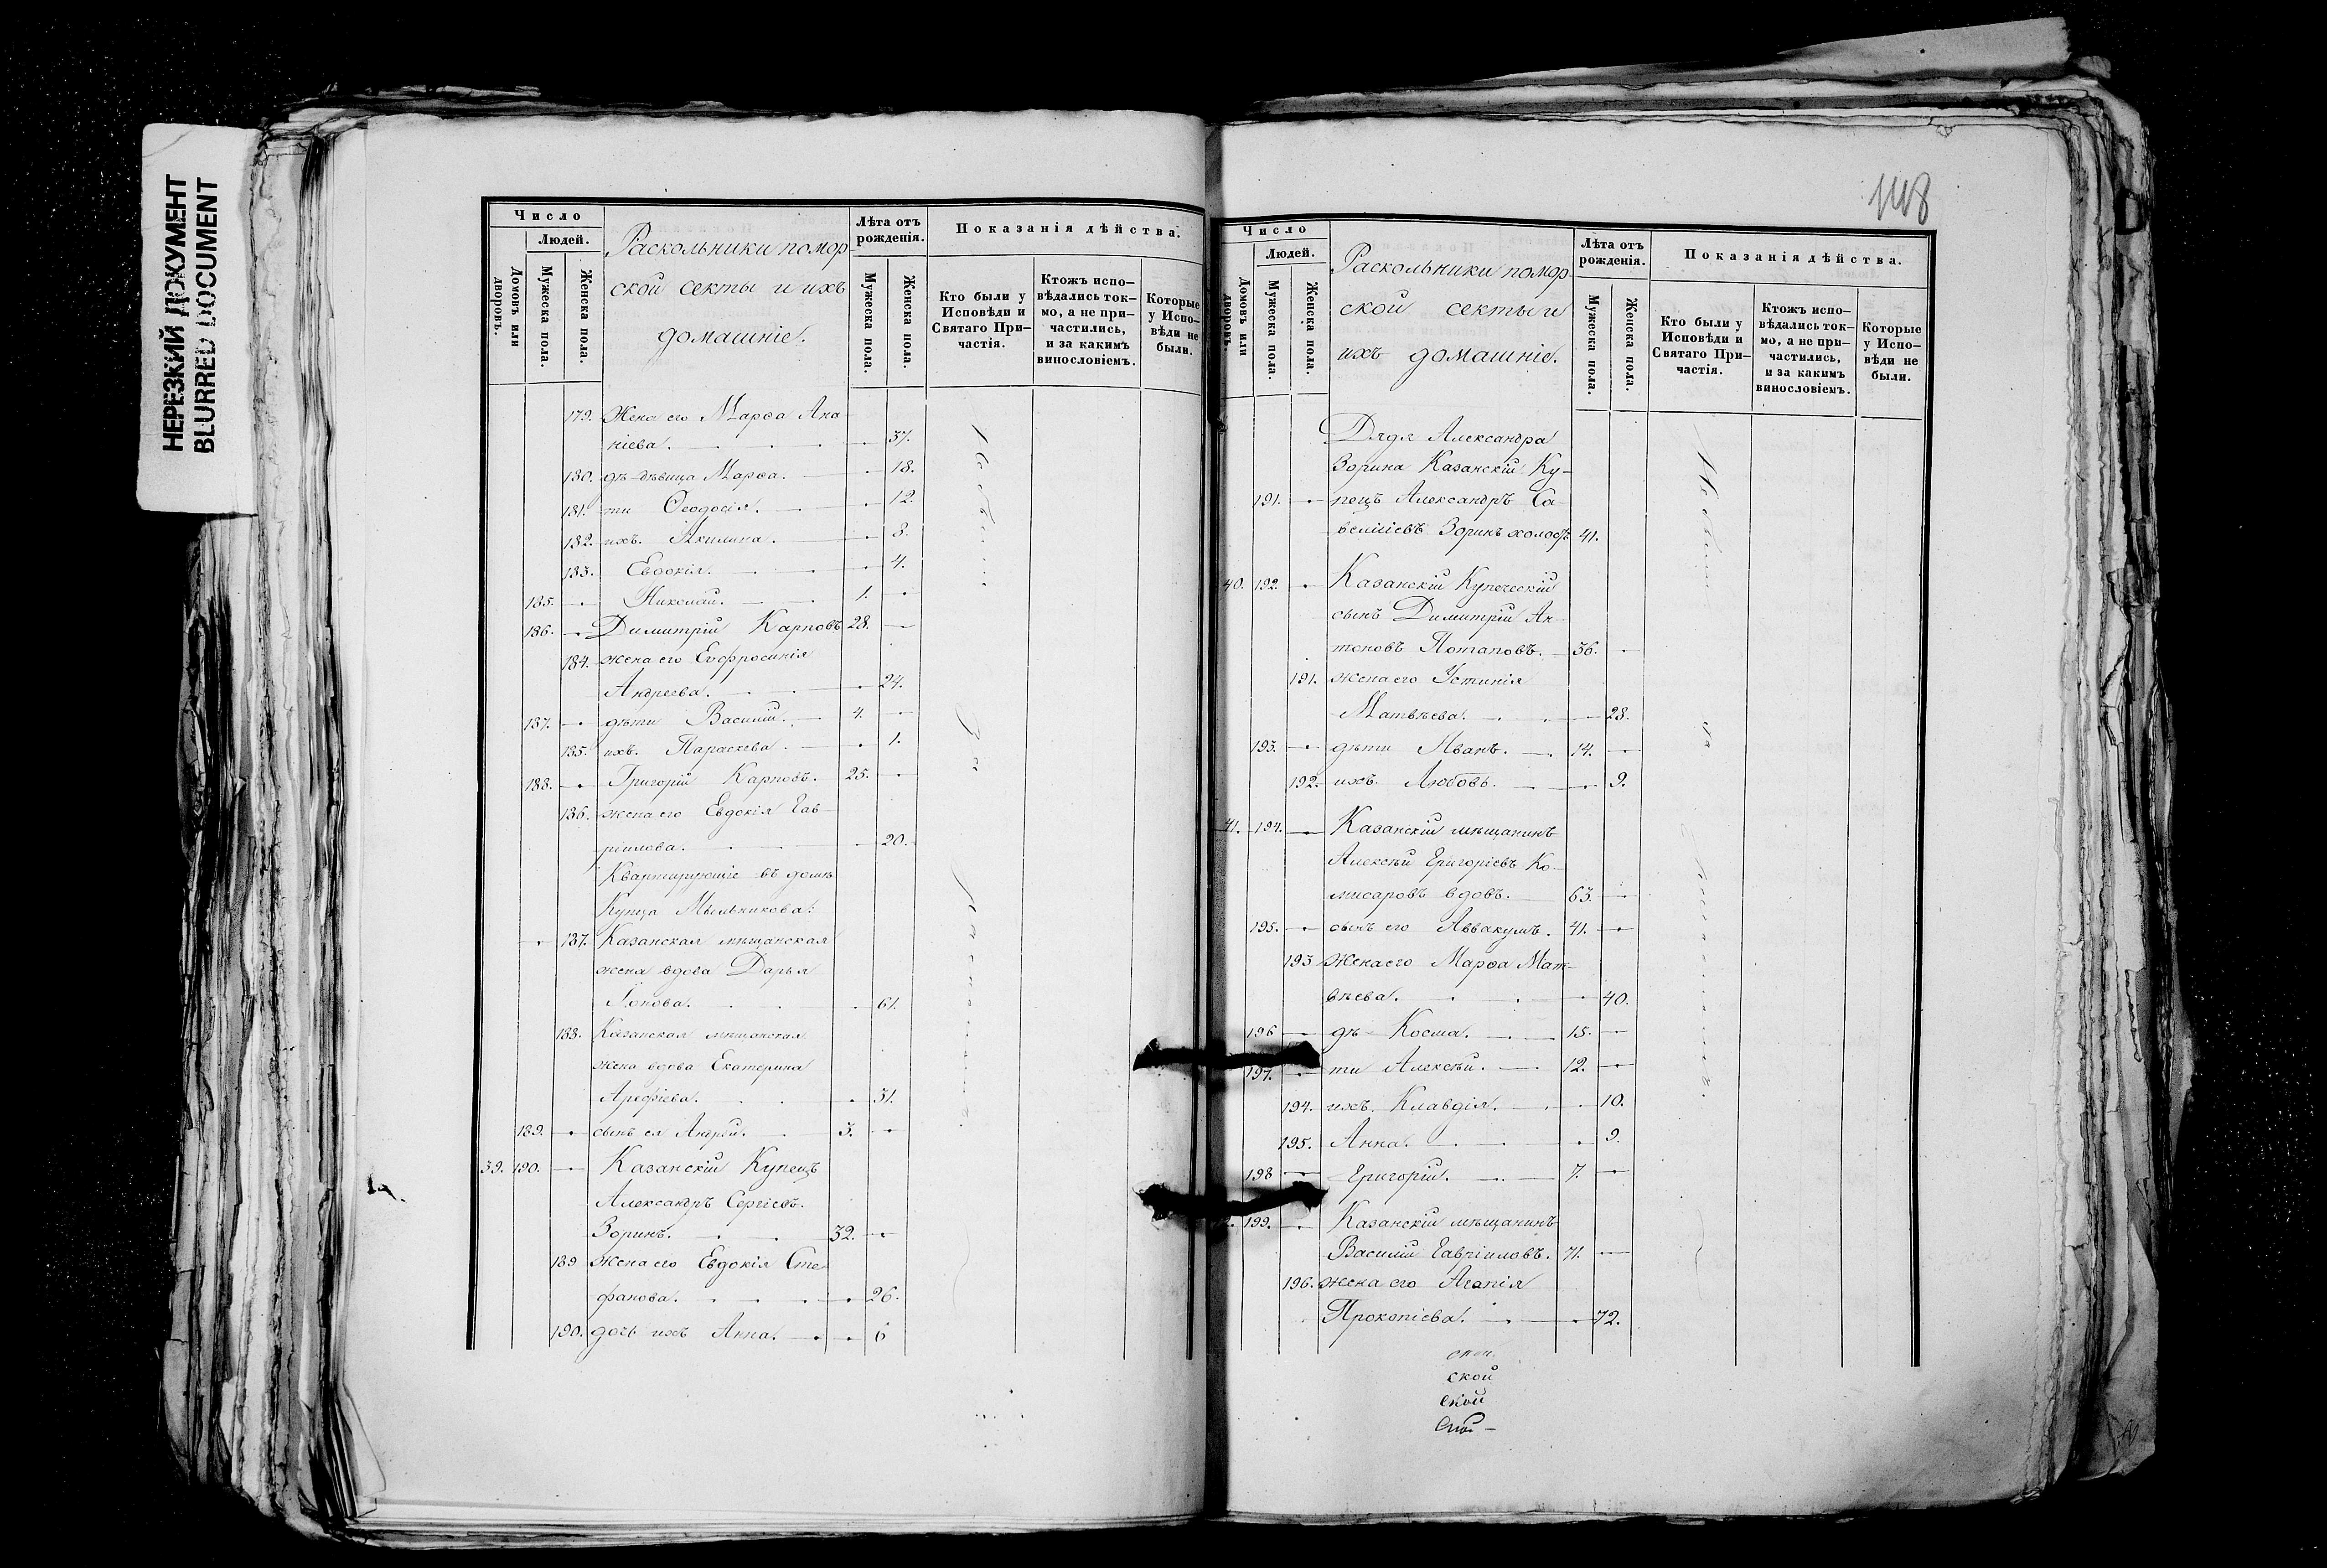 НЕРЕЗКИЙ ДОКУМЕНТ
BLURRED DOCUMENT
Число
Людей.
Домовъ или дворовъ.
Мужеска пола.
Женска пола.
Раскольники помор
ской секты и ихъ
домашніе.
Лѣта отъ рожденія.
Мужеска пола.
Женска пола.
Показанія дѣйства.
Кто были у Исповѣди и Святаго При-
частія.
Ктожъ испо-
вѣдались ток-
мо, а не при-
частились,
и за какимъ
винословіемъ.
Которые
у Испо-
вѣди не
были.
179. Жена его Марѳа Ана
ніева. 37.
180. дѣ- дѣвица Марѳа. 18.
181. ти Ѳеодосія. 12.
182. ихъ. Акилина. 8.
183. Евдокія. 4.
185. Николай. 1.
186. Димитрій Карповъ 28.
184. жена его Евфросинія
Андреева. 24.
187. дѣти Василій. 4.
185. ихъ. Параскева. 1.
188. Григорій Карповъ. 25.
186. жена его Евдокія Гав-
риилова. 20.
Квартирующіе въ домѣ
Купца Мыльникова:
187. Казанская мѣщанская
жена вдова Дарья
Іонова. 61.
188. Казанская мѣщанская
жена вдова Екатерина
Арефіева. 31.
189. сынъ ея Андрей. 3.
39. 190. Казанскій Купецъ
Александръ Сергіевъ.
Зоринъ. 32.
189 жена его Евдокія Сте-
фанова. 26.
190. дочь ихъ Анна. 6
148
Число
Людей.
Домовъ или дворовъ.
Мужеска пола.
Женска пола.
Раскольники помор-
ской секты и
ихъ домашніе.
Лѣта отъ рожденія.
Мужеска пола.
Женска пола.
Показанія дѣйства.
Кто были у Исповѣди и Святаго При-
частія.
Ктожъ испо-
вѣдались ток-
мо, а не при-
частились,
и за какимъ
винословіемъ.
Которые
у Испо-
вѣди не
были.
Дядя Александра
Зорина Казанскій Ку-
191. пецъ Александръ Са-
веліевъ Зоринъ холостъ 41.
40. 192. Казанскій Купеческій
сынъ Димитрій Ан-
тоновъ Потаповъ. 36.
191. жена его Устинія
Матвѣева. 28.
193. дѣти Иванъ. 14.
192. ихъ. Любовь. 9.
41. 194. Казанскій мѣщанинъ
Алексѣй Григоріевъ Ко-
мисаровъ вдовъ. 63.
195. сынъ его Аввакумъ. 41.
193 Жена его Марѳа Мат-
вѣева. 40.
196 дѣ- Косма. 15.
197. ти Алексѣй. 12.
194. ихъ. Клавдія. 10.
195. Анна. 9.
198 Григорій. 7.
199. Казанскій мѣщанинъ
Василій Гавріиловъ. 71.
196. жена его Агапія
Прокопіева. 72.
ской
ской